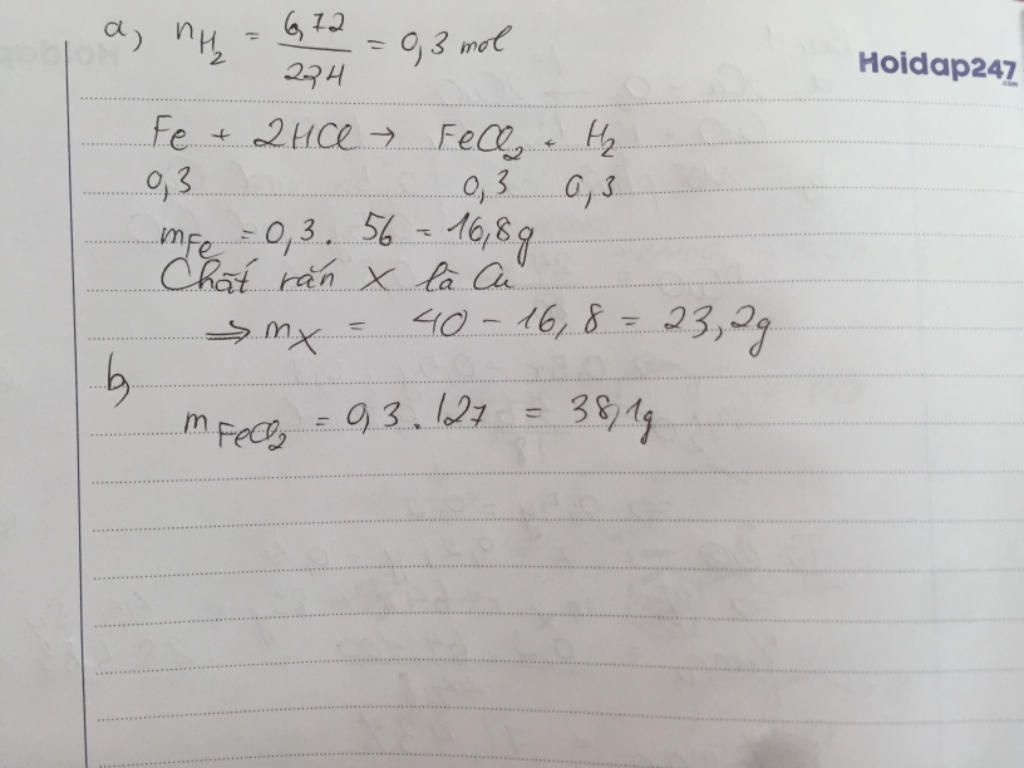 a) nH₂ = 6,72 / 22,4 = 0,3 mol
Hoidap247
.com
Fe + 2HCl → FeCl₂ + H₂
0,3 0,3 0,3
mFe = 0,3 . 56 = 16,8g
Chất rắn X là Cu
⇒ mX = 40 - 16,8 = 23,2g
b)
mFeCl₂ = 0,3 . 127 = 38,1g